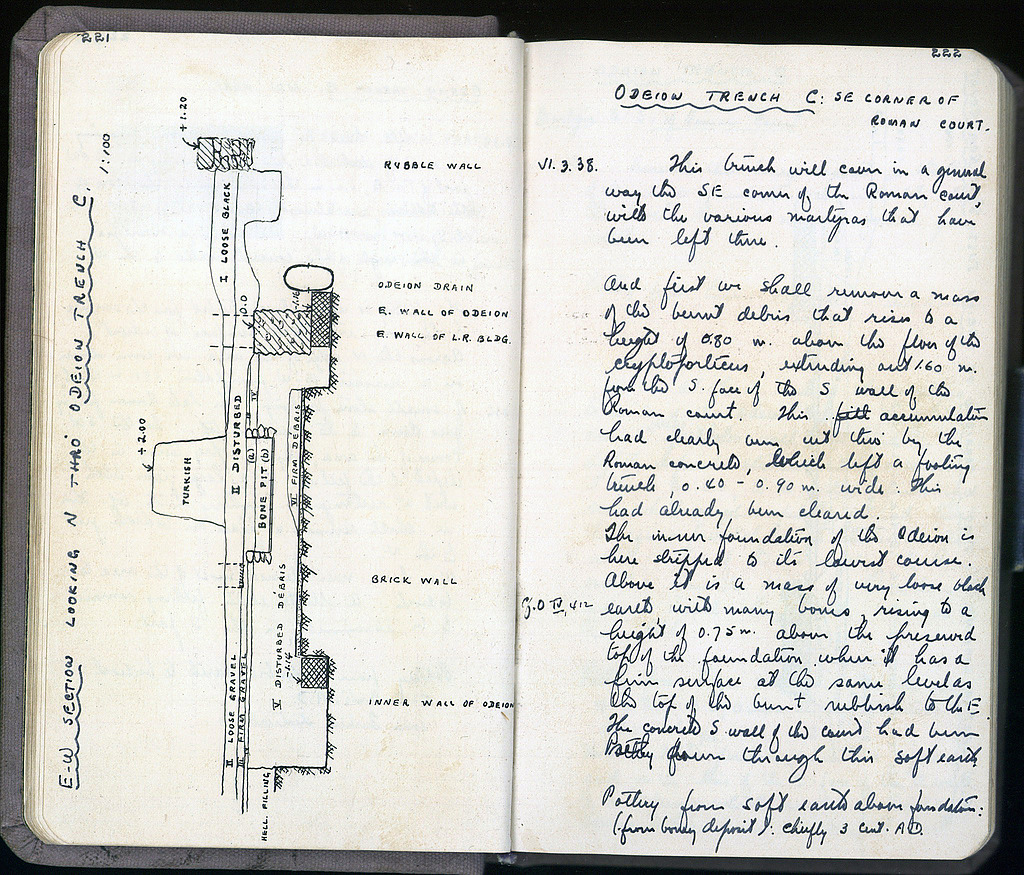 221
E-W SECTION LOOKING N THRO' ODEION TRENCH C.
1:100
+1.20
RUBBLE WALL
I LOOSE BLACK
ODEION DRAIN
-1.16
0.0
E. WALL OF ODEION
E. WALL OF L.R. BLDG.
IV
+2.00
TURKISH
II DISTURBED
(a)
BONE PIT (b)
VI FIRM DÉBRIS
BRICK WALL
V DISTURBED DÉBRIS
-1.14
INNER WALL OF ODEION
II LOOSE GRAVEL
III FIRM GRAVEL
HELL. FILLING
222
ODEION TRENCH C: SE CORNER OF
ROMAN COURT.
VI. 3. 38. This trench will cover in a general
way the SE corner of the Roman court,
with the various martyras that have
been left there.
And first we shall remove a mass
of the burnt debris that rises to a
height of 0.80 m. above the floor of the
cryptoporticus, extruding out 1.60 m.
from the S. face of the S wall of the
Roman court. This fill accumulation
had clearly been cut thro by the
Roman concrete, which left a footing
trench, 0.40 - 0.90 m. wide. This
had already been cleared.
The inner foundation of the Odeion is
here stripped to its lowest course.
Above it is a mass of very loose black
IV, 412
earth with many bones, rising to a
height of 0.75 m. above the preserved
top of the foundation, where it has a
firm surface at the same level as
the top of the burnt rubbish to the E.
The concrete S. wall of the court had been
down through this soft earth
Pottery from soft earth above foundation:
(from boney deposit): chiefly 3 cent. A.D.